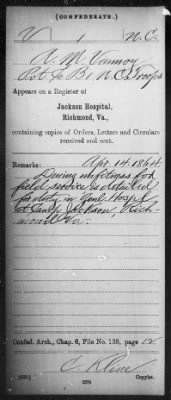 (CONFEDERATE.)
V 1 N.C.
A. M. Vannoy
Pvt Co B 1 N.C. Troops
Appears on a Register of
Jackson Hospital,
Richmond, Va.,
containing copies of Orders, Letters and Circulars
received and sent.
Remarks: Apr. 14. 1864
During unfitness for
field service is detailed
for duty in Genl. Hospl
at Camp Jackson, Rich-
mond Va.
Confed. Arch., Chap. 6, File No. 138, page 12
C. Kline
Copyist.